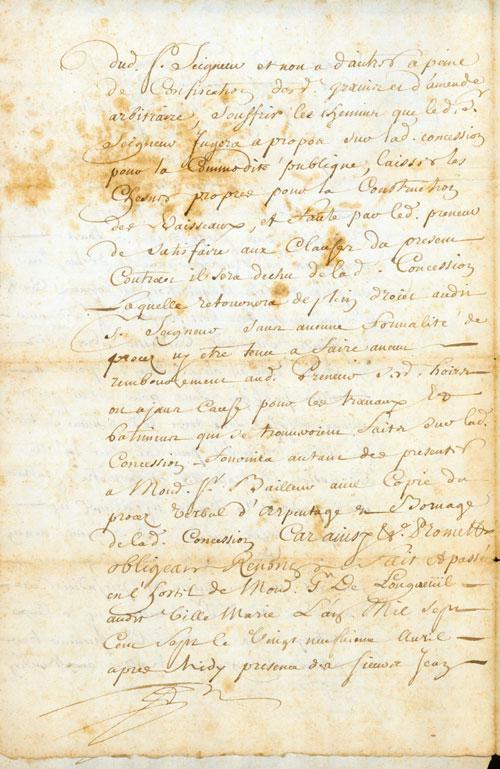 dud. Sr. Seigneur et non a d'autres a peine
de Confiscation desd. grains et d'amende
arbitraire, Souffrir les chemins que led. Sr.
Seigneur Jugera apropos sur lad. concession
pour la Commodité publique, laisser les
Chesnes propres pour la Construction
des Vaisseaux, et faute par led. preneur
de satisfaire aux Clauses du present
Contract il sera dechu de lad. Concession
Laquelle retournera de plein droit audit
Sr. Seigneur sans aucune formalité de
procez ny etre tenu a faire aucun
remboursement aud. Preneur sesd. hoirs
ou ayans Cause pour les travaux &
batimens qui se trouveroient faits sur lad.
Concession fournira autant des presentes
a Mond. Sr. Bailleur avec Copie du
procez Verbal d'Arpentage et Bornage
de lad. Concession Car ainsy &a. Promett
obligeant Renonc Fait et passé
en l'hostel de Mond. De Longueüil
audit Ville Marie L'an Mil Sept
Cent Sept le Vingt neufvieme Avril
apres Midy presence des Sieurs Jean